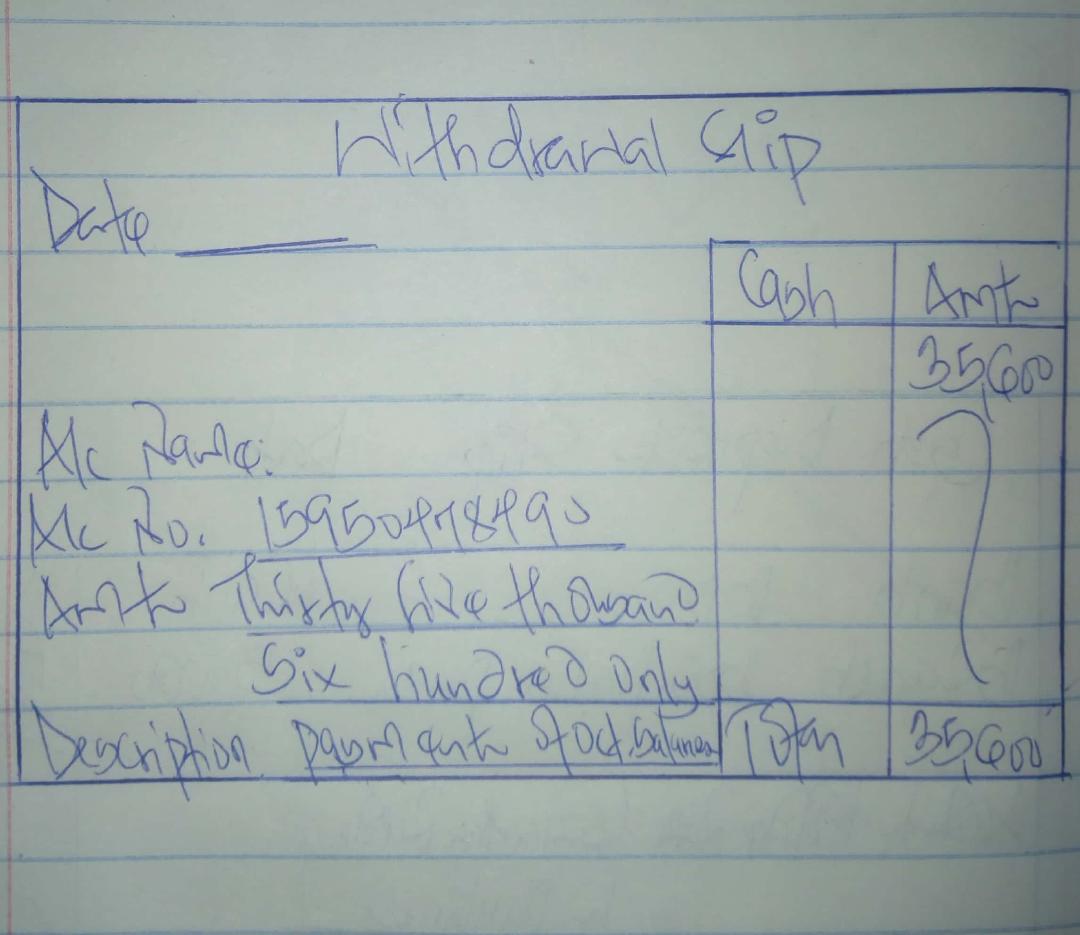 Withdrawal Slip
Date
Cash Amt
35,600
A/c Name:
A/c No. 15950478490
Amt Thirty five thousand
Six hundred only
Description payment of Oct. balance Total 35,600